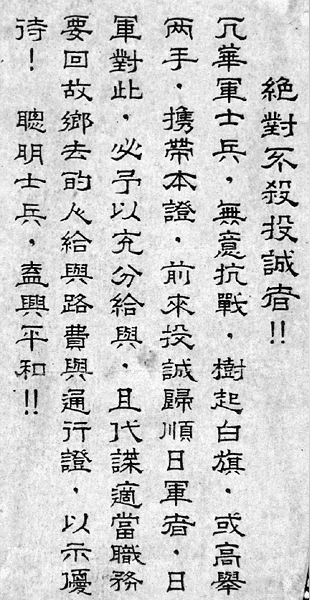 絶對不殺投誠者!!
凡華軍士兵，無意抗戰，樹起白旗，或高舉
兩手，携帶本證，前來投誠歸順日軍者，日
軍對此，必予以充分給與，且代謀適當職務
要回故鄉去的人給與路費與通行證，以示優
待！　聰明士兵，盍興平和!!